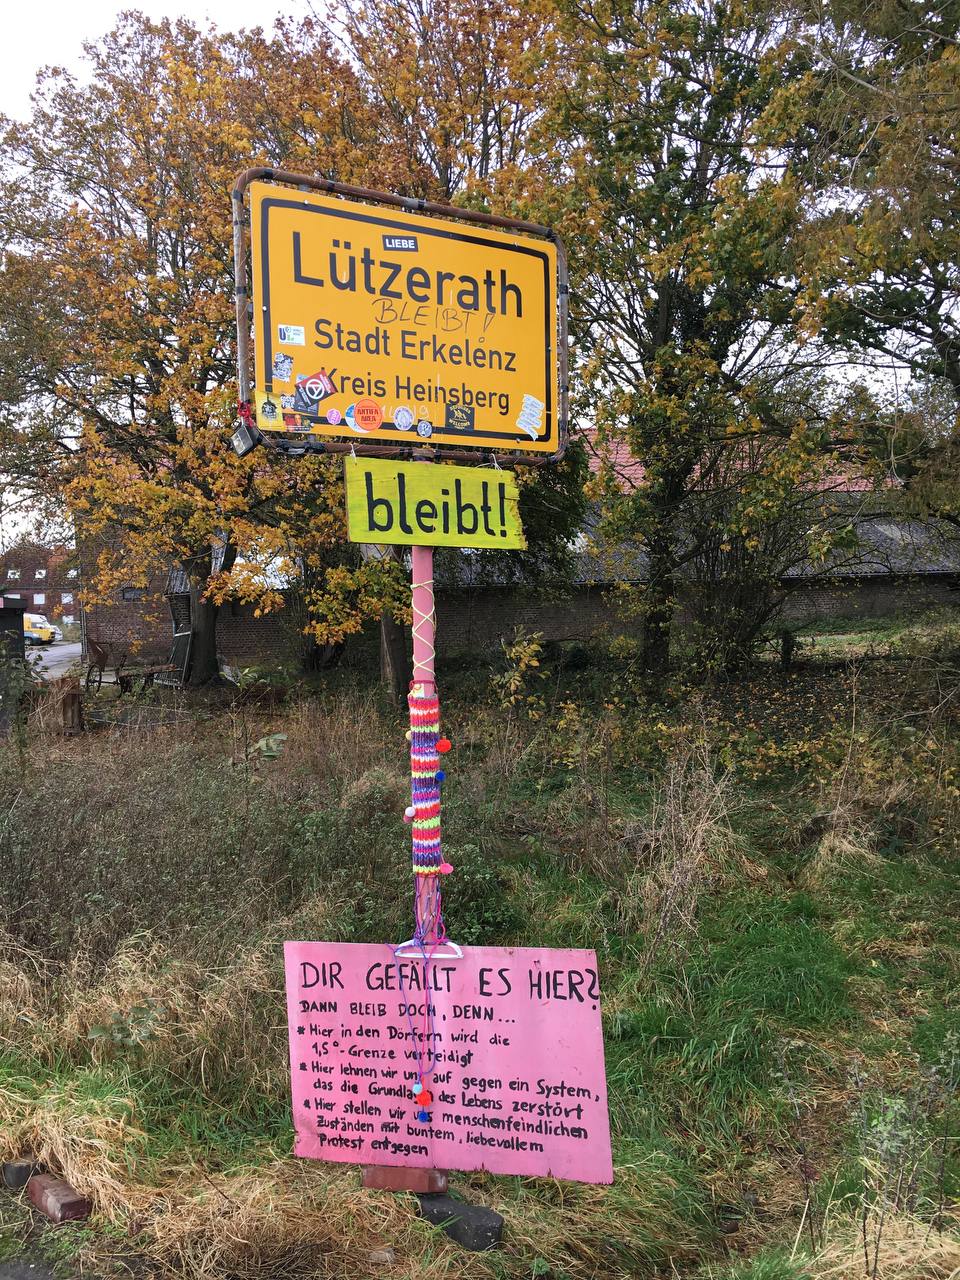 LIEBE
Lützerath
BLEIBT!
Stadt Erkelenz
Kreis Heinsberg
ANTIFA
AREA
WELCOME
bleibt!
DIR GEFÄLLT ES HIER?
DANN BLEIB DOCH, DENN...
* Hier in den Dörfern wird die
1,5°-Grenze verteidigt
* Hier lehnen wir uns auf gegen ein System,
das die Grundlagen des Lebens zerstört
* Hier stellen wir uns menschenfeindlichen
Zuständen mit buntem, liebevollem
Protest entgegen